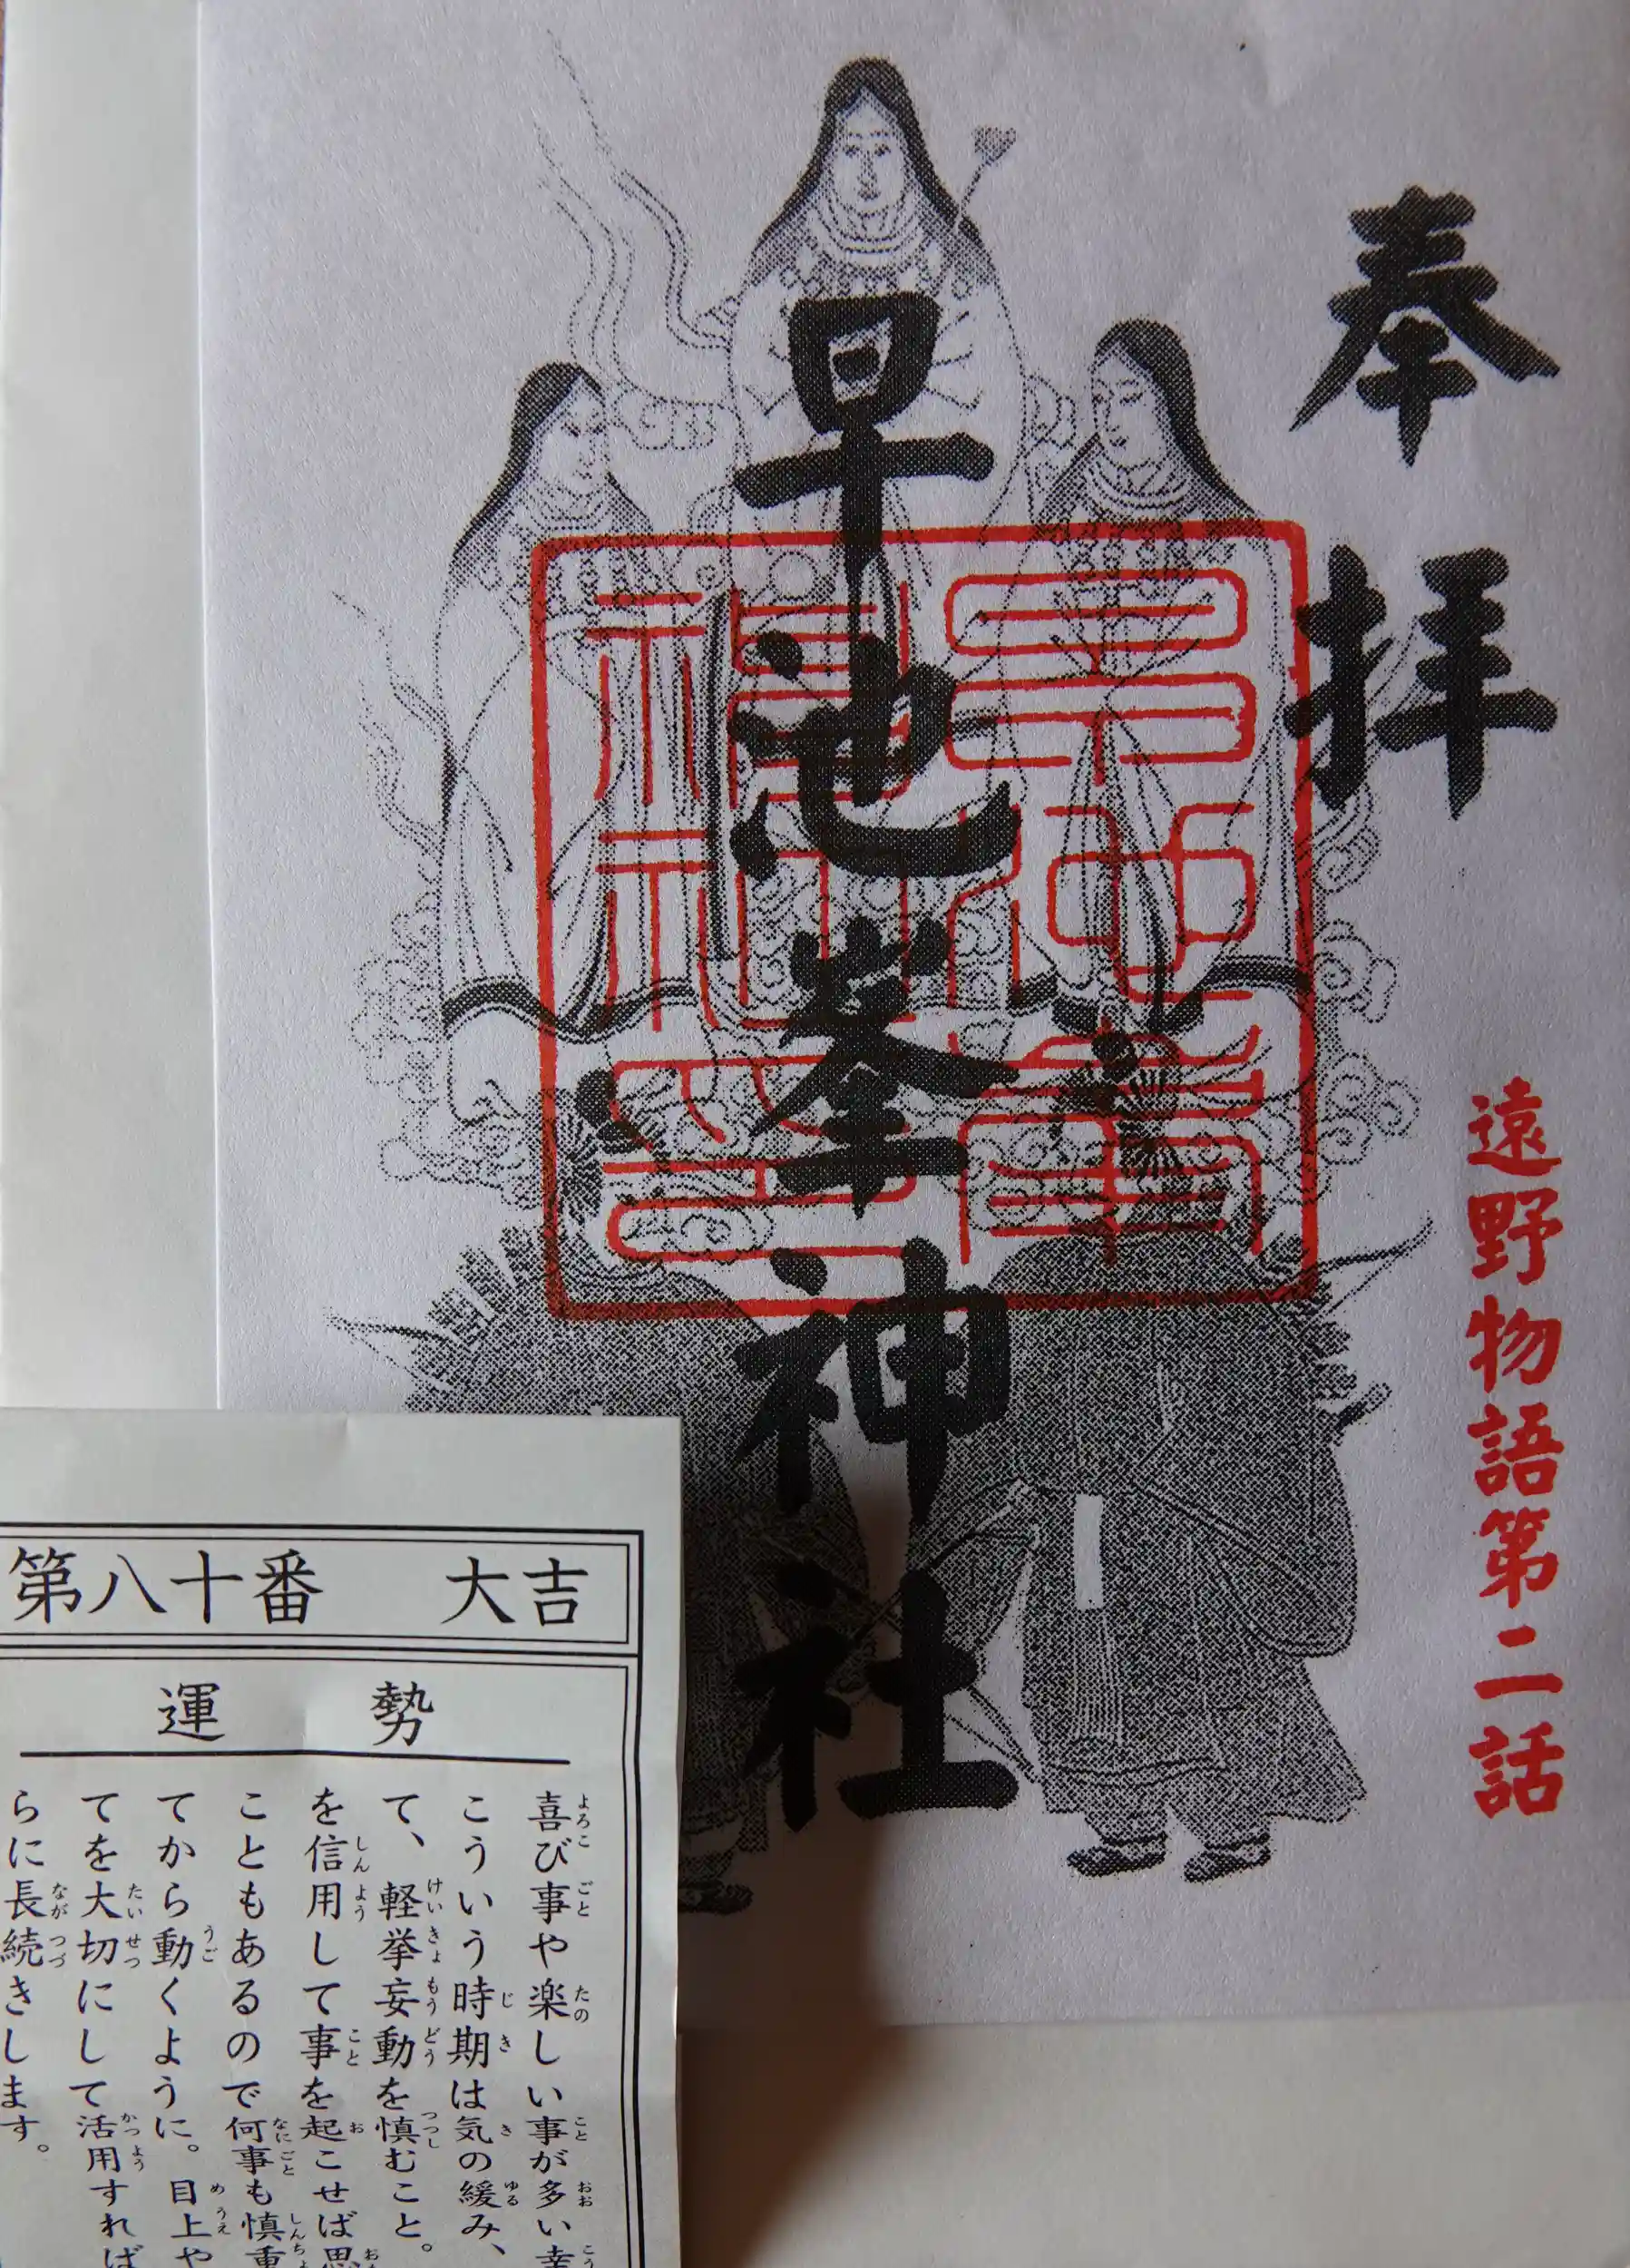 奉拝
早池峯神社
遠野物語第二話
第八十番 大吉
運勢
喜び事や楽しい事が多い幸
こういう時期は気の緩み、
て、軽挙妄動を慎むこと。
を信用して事を起こせば思
こともあるので何事も慎重
てから動くように。目上や
てを大切にして活用すれば
らに長続きします。